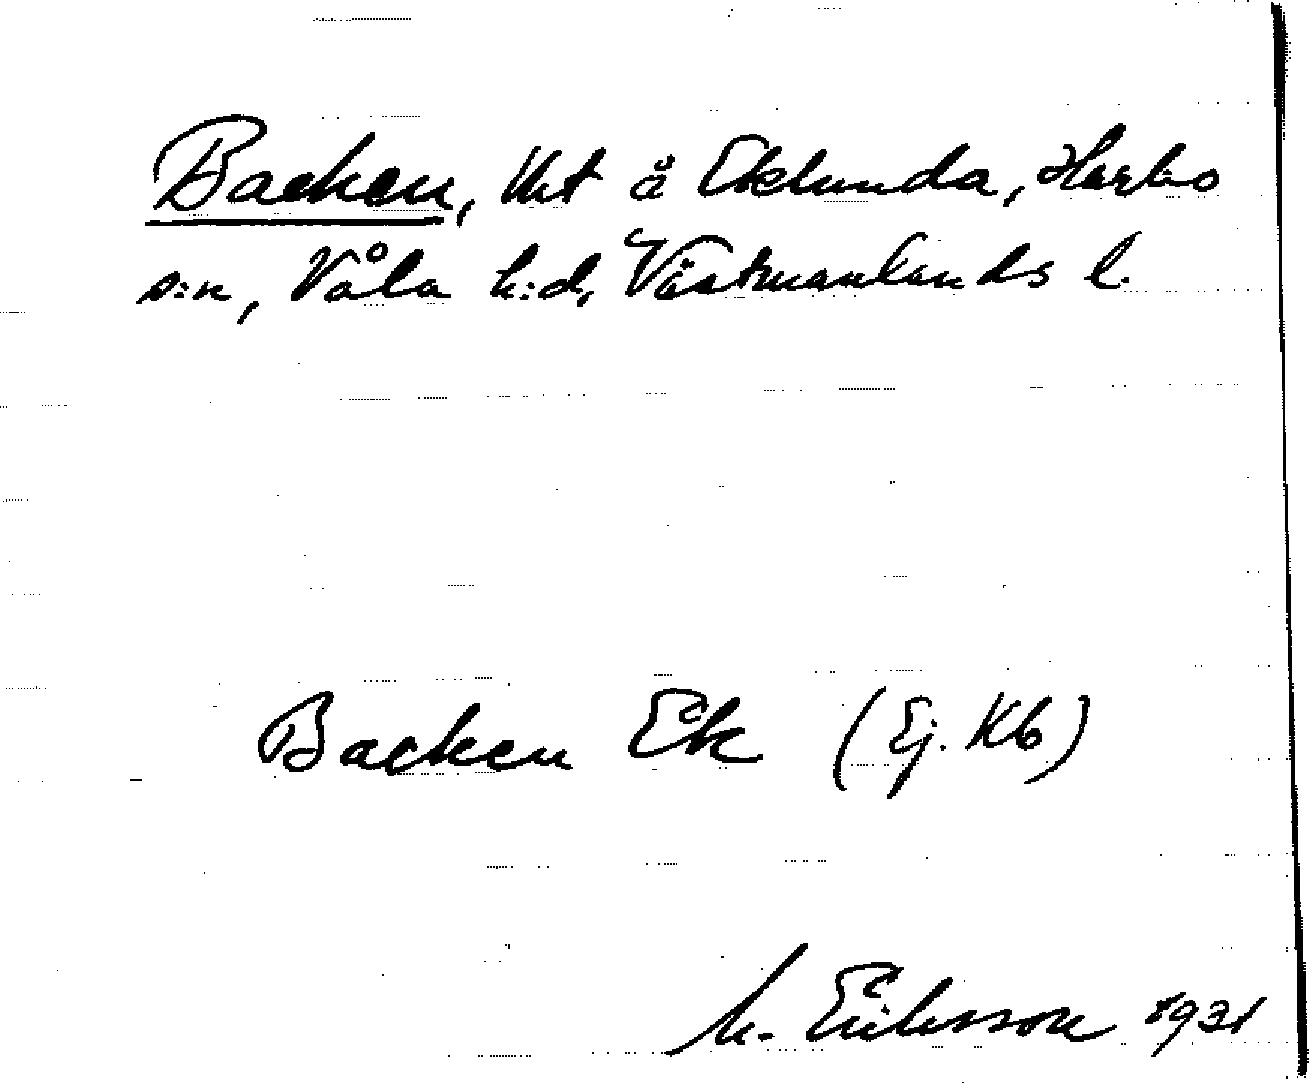 Backen, lht å Eklunda, Harbo
s:n, Våla h:d, Västmanlands l.
Backen Ek (Ej. Kb)
M. Eriksson 1931